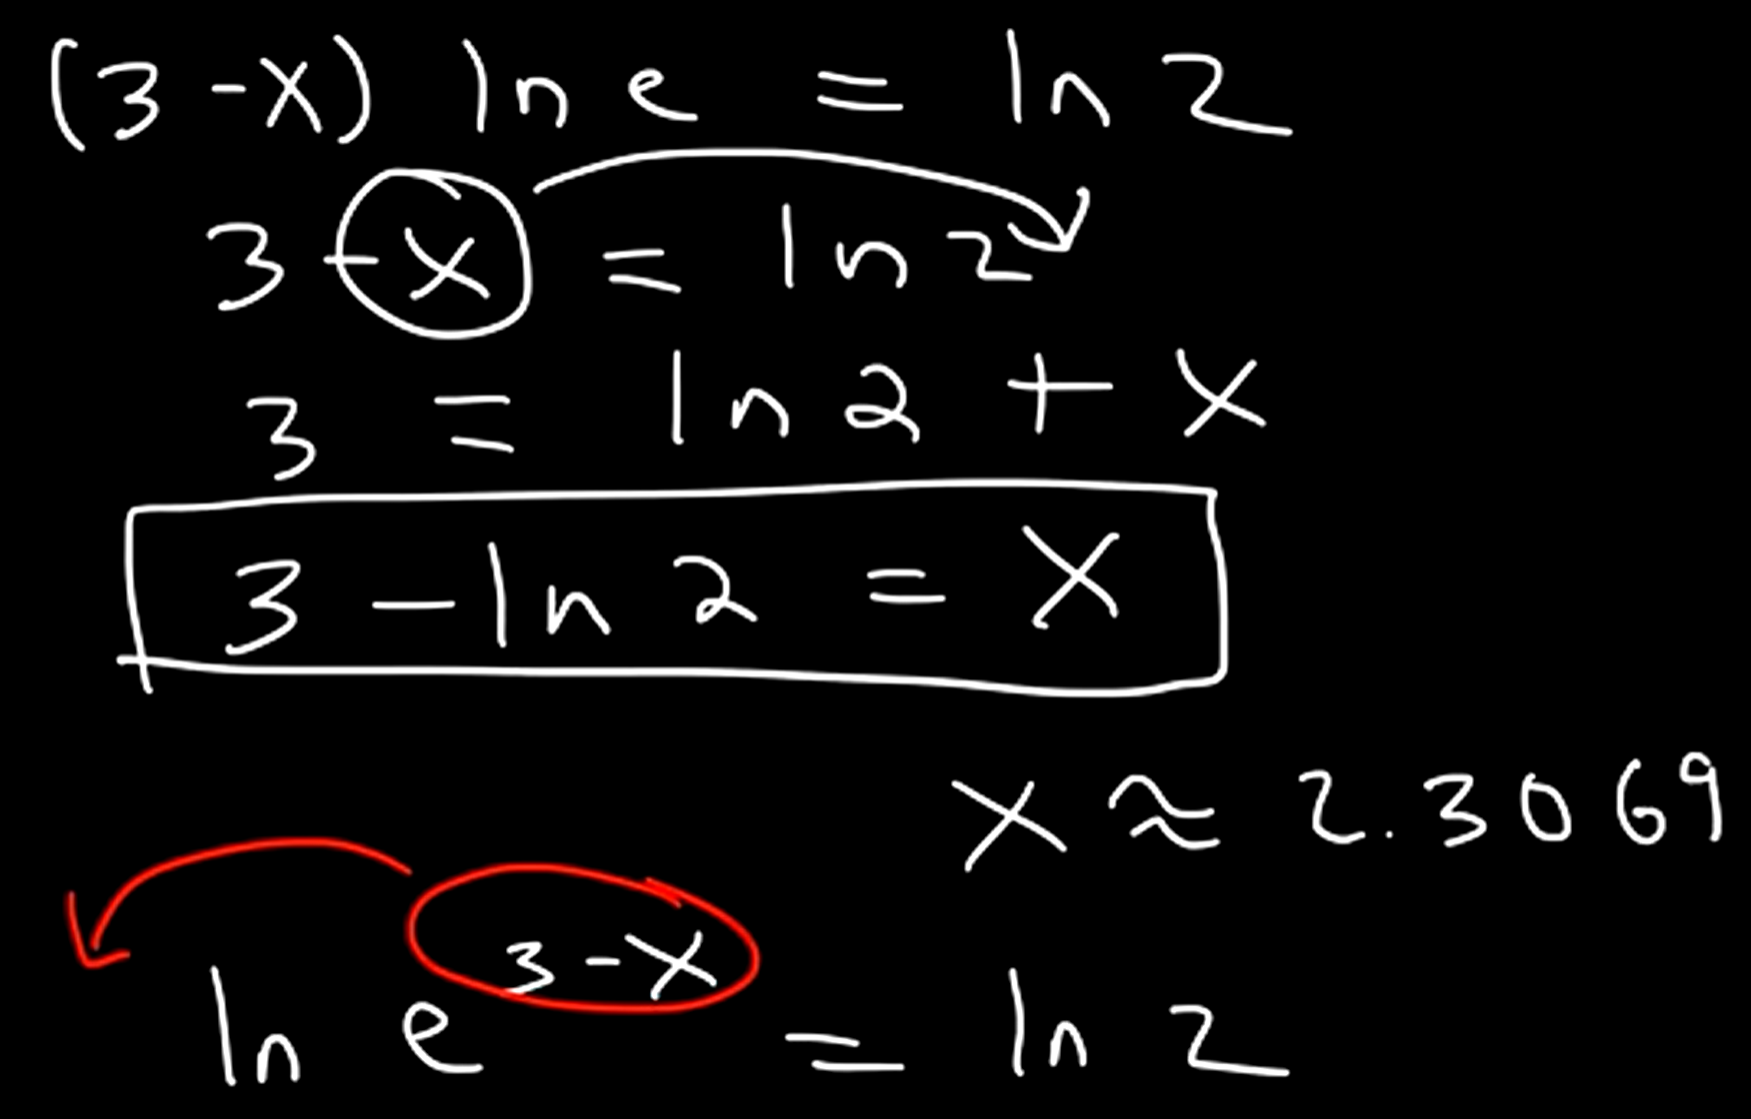 (3-x) ln e = ln 2
3 - x = ln 2
3 = ln 2 + x
3 - ln 2 = x
x ≈ 2.3069
ln e^{3-x} = ln 2